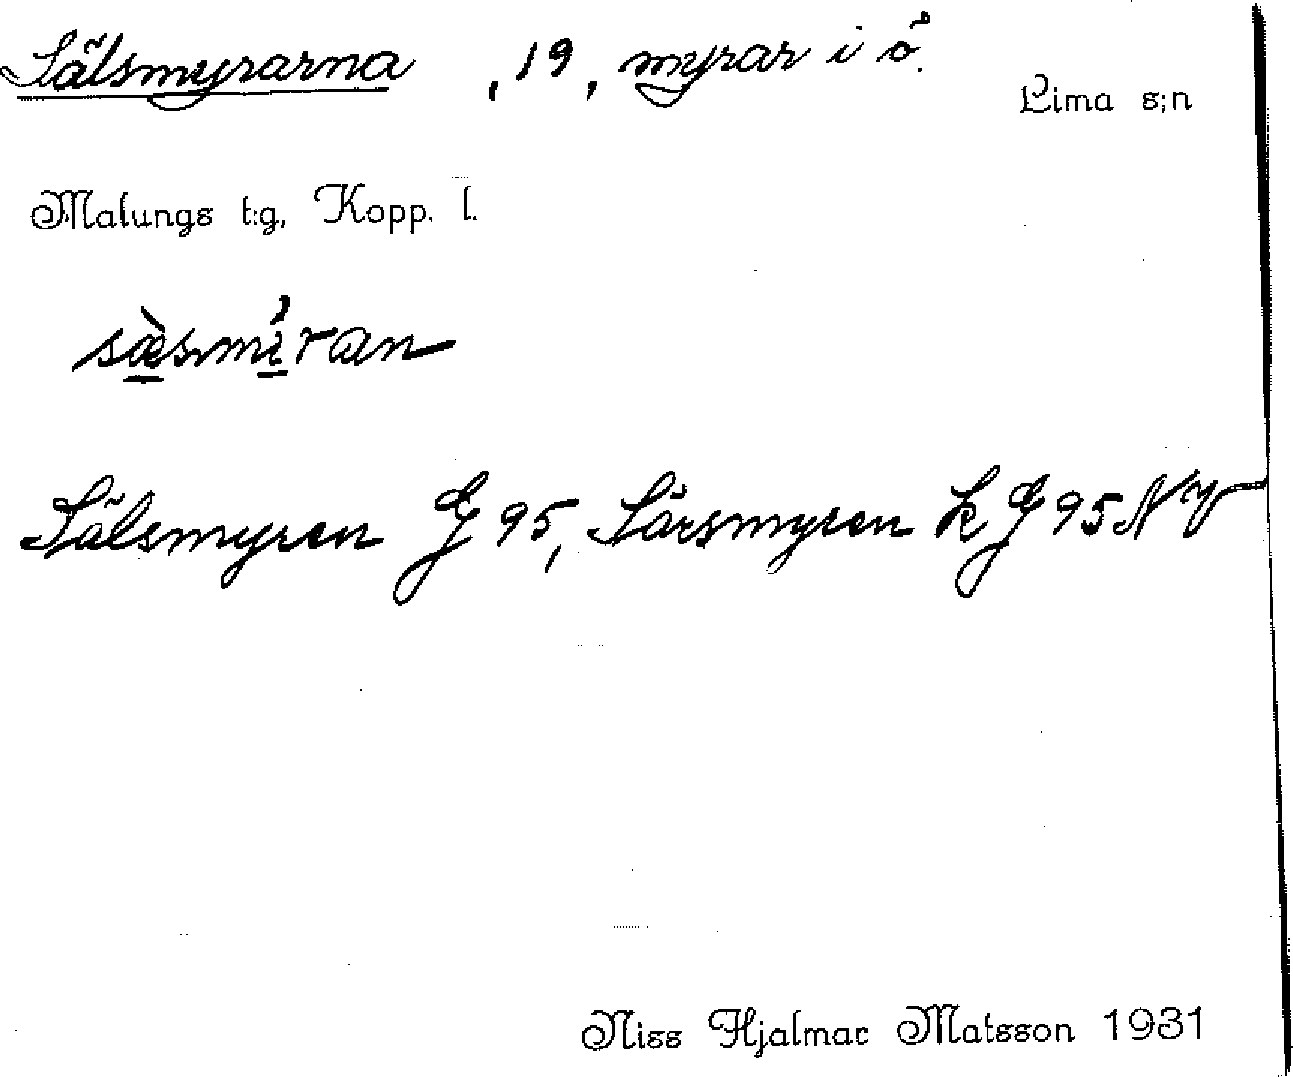 Sälsmyrarna , 19, myrar i ö. Lima s;n
Malungs t:g, Kopp. l.
sæ̀smíran
Sälsmyren G 95, Särsmyren k G 95 NV
Niss Hjalmar Matsson 1931